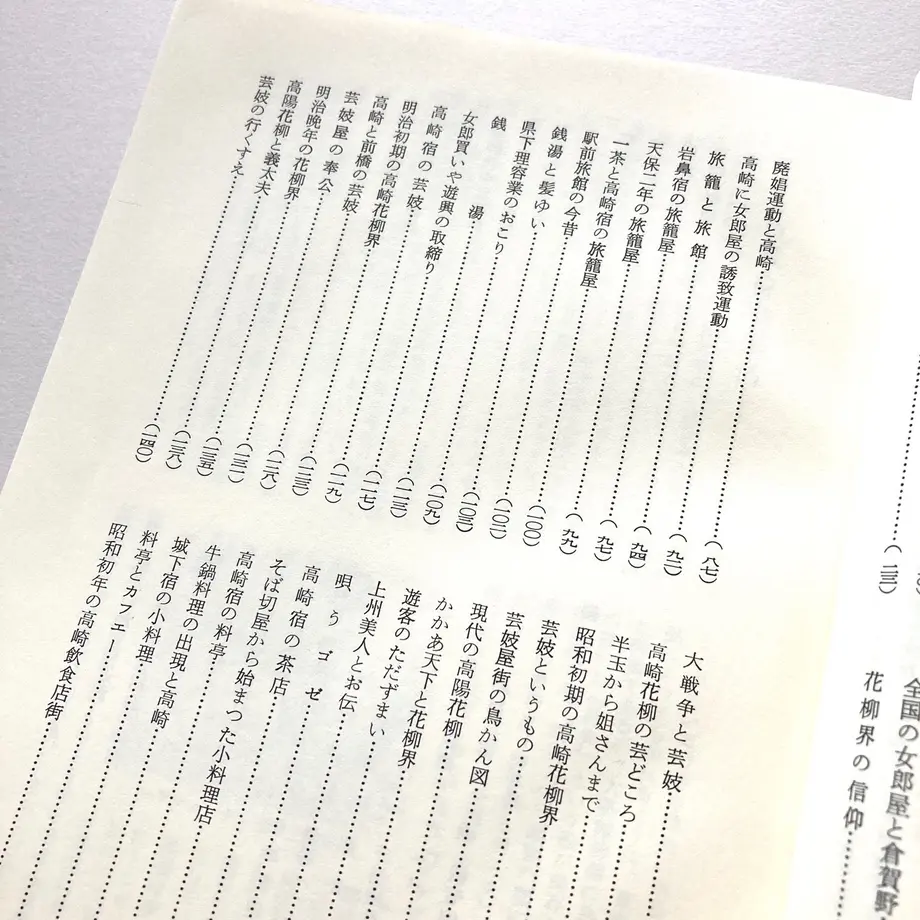 (二三)
全国の女郎屋と倉賀野
花柳界の信仰…………
廃娼運動と高崎…………(八七)
高崎に女郎屋の誘致運動…………(九二)
旅籠と旅館…………(九四)
岩鼻宿の旅籠屋…………(九七)
天保二年の旅籠屋…………(九九)
一茶と高崎宿の旅籠屋…………(一〇〇)
駅前旅館の今昔…………(一〇二)
銭湯と髪ゆい…………(一〇三)
県下理容業のおこり…………(一〇九)
銭湯…………(一一三)
女郎買いや遊興の取締り…………(一一七)
高崎宿の芸妓…………(一一九)
明治初期の高崎花柳界…………(一二三)
高崎と前橋の芸妓…………(一二八)
芸妓屋の奉公…………(一三二)
明治晩年の花柳界…………(一三五)
高陽花柳と義太夫…………(一三八)
芸妓の行くすえ…………(一四〇)
大戦争と芸妓…………
高崎花柳の芸どころ…………
半玉から姐さんまで…………
昭和初期の高崎花柳界…………
芸妓というもの…………
芸妓屋街の鳥かん図…………
現代の高陽花柳…………
かかあ天下と花柳界…………
遊客のただずまい…………
上州美人とお伝…………
唄うゴゼ…………
高崎宿の茶店…………
そば切屋から始まつた小料理店…………
高崎宿の料亭…………
牛鍋料理の出現と高崎…………
城下宿の小料理…………
料亭とカフェー…………
昭和初年の高崎飲食店街…………